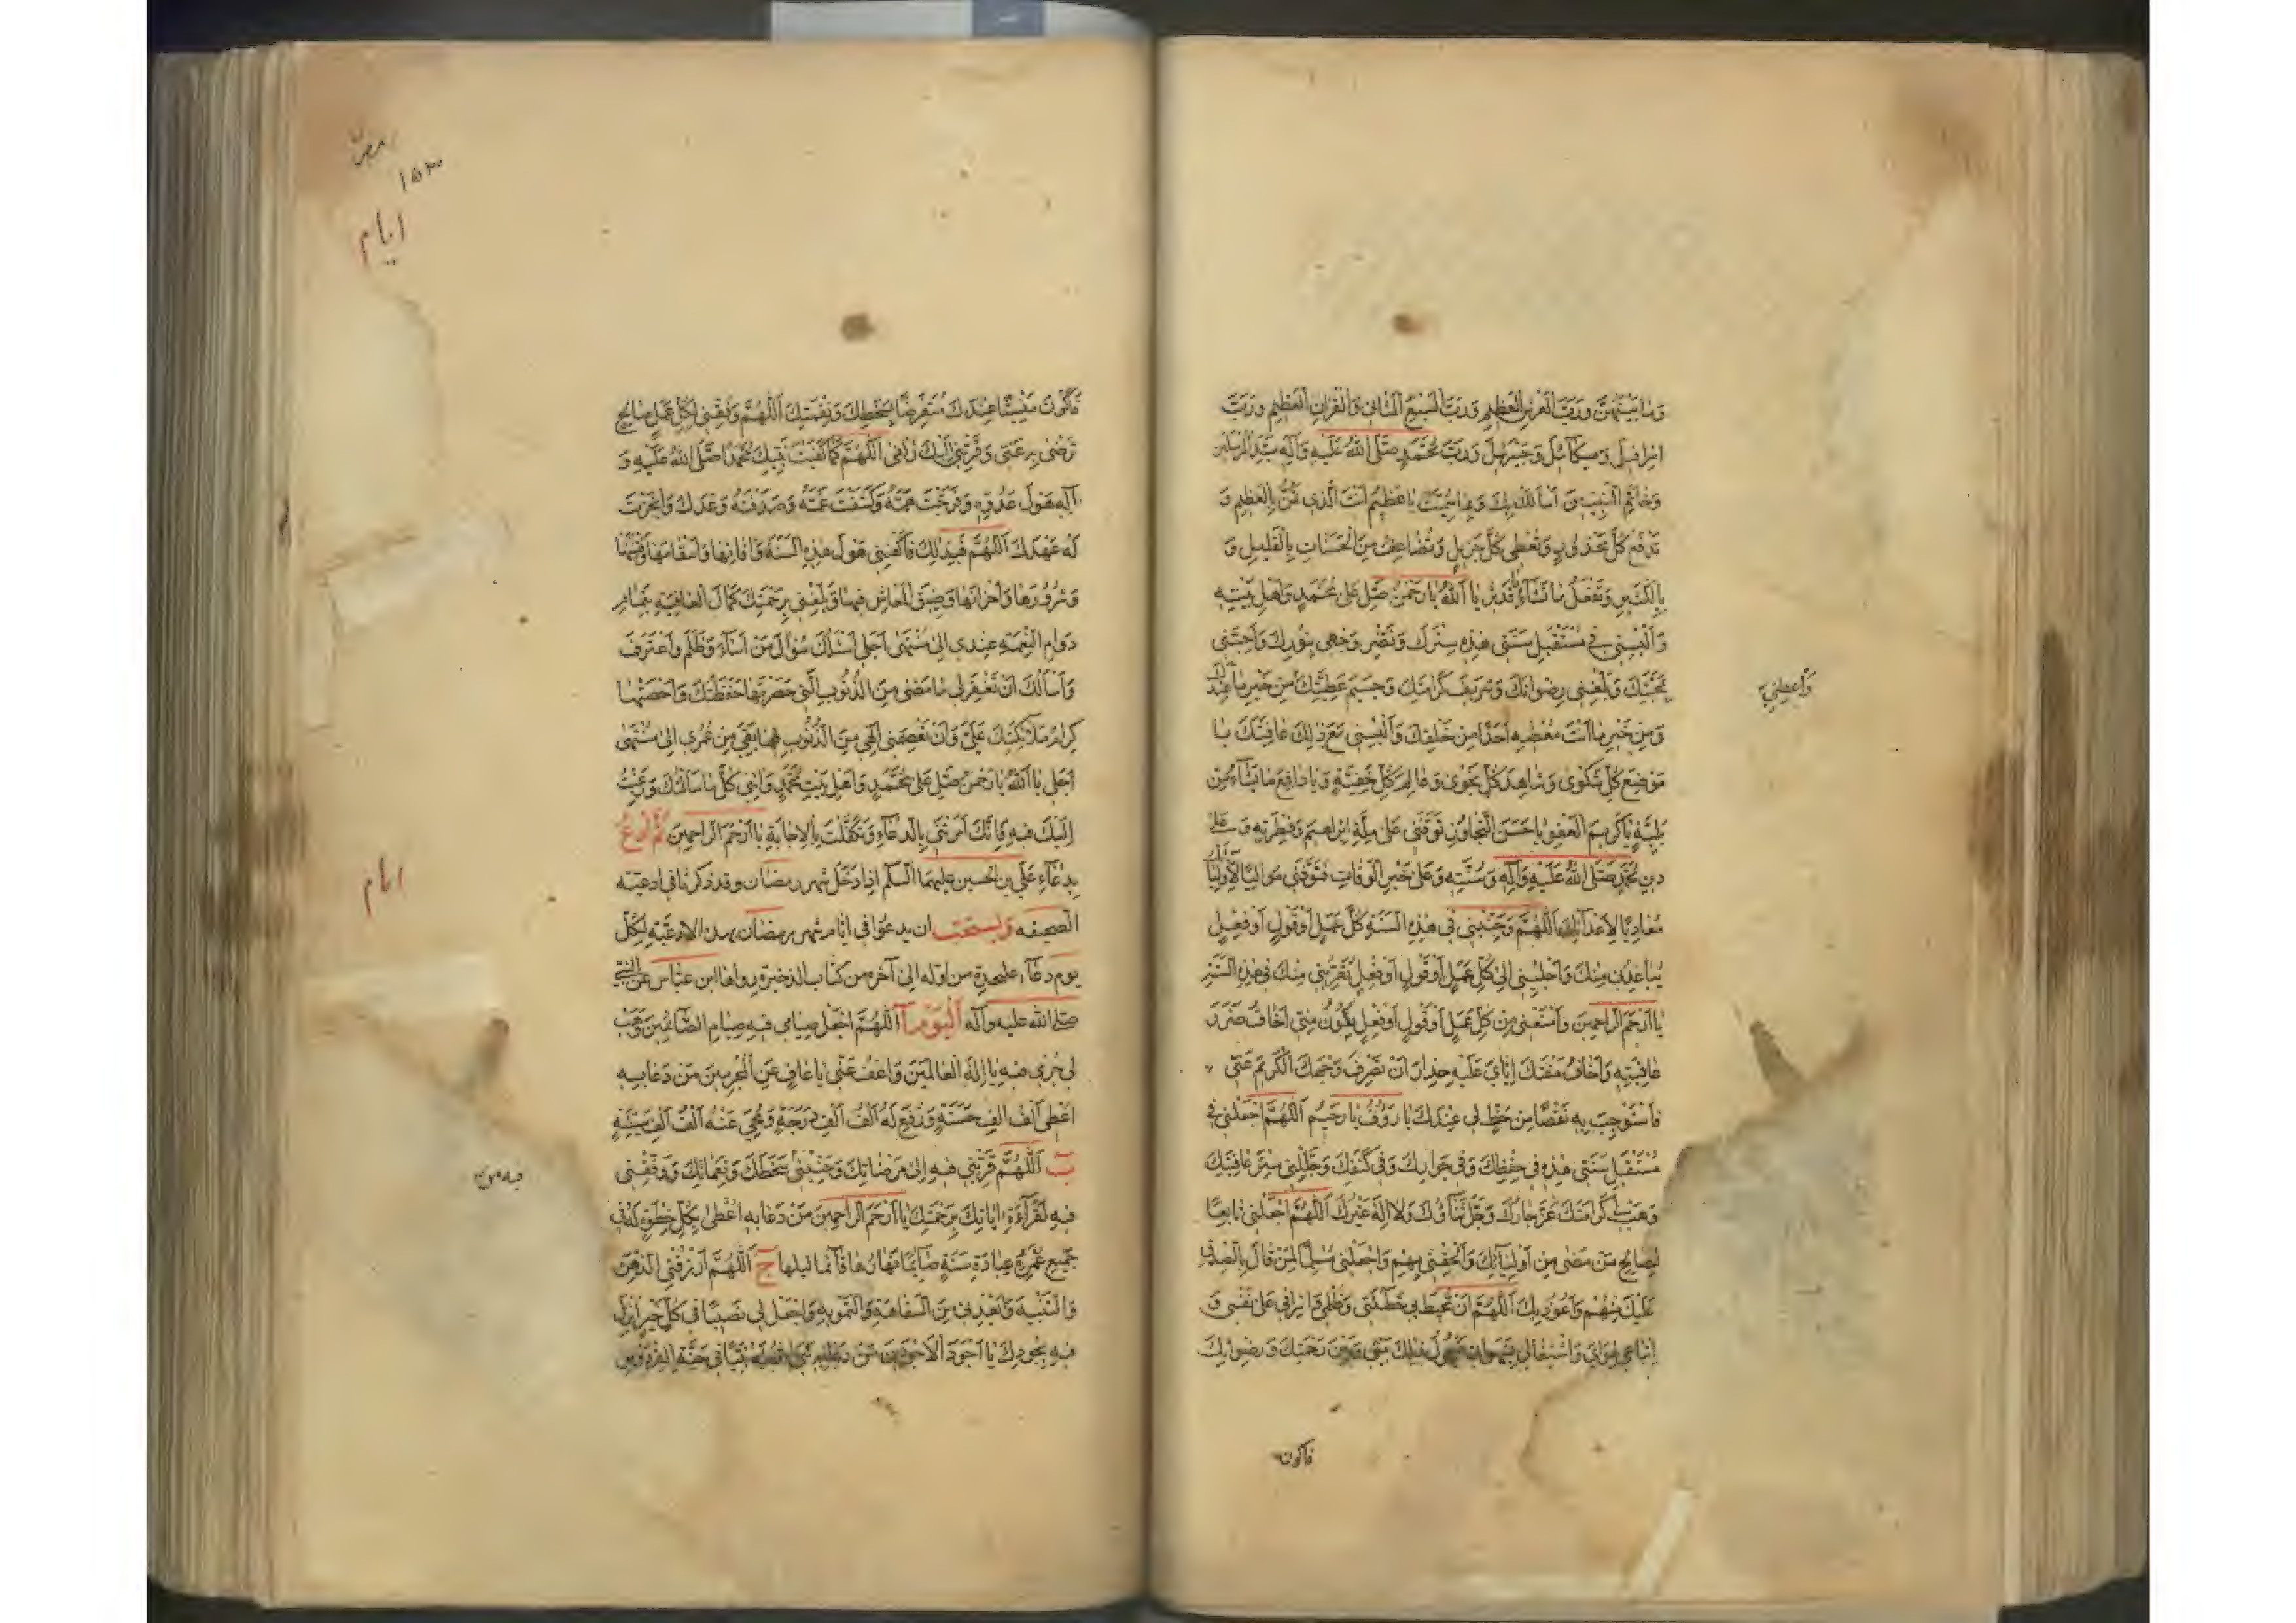 وَمَا بَيْنَهُنَّ وَرَبَّ الْعَرْشِ الْعَظِيمِ وَرَبَّ السَّبْعِ الْمَثَانِي وَالْقُرْآنِ الْعَظِيمِ وَرَبَّ
اِسْرَافِيلَ وَمِيكَائِيلَ وَجِبْرَئِيلَ وَرَبَّ مُحَمَّدٍ صَلَّى اللهُ عَلَيْهِ وَآلِهِ سَيِّدِ الْمُرْسَلِينَ
وَخَاتَمِ النَّبِيِّينَ أَسْأَلُكَ بِكَ وَبِمَا سَمَّيْتَ يَا عَظِيمُ أَنْتَ الَّذِي تَمُنُّ بِالْعَظِيمِ وَ
تَدْفَعُ كُلَّ مَحْذُورٍ وَتُعْطِي كُلَّ جَزِيلٍ وَتُضَاعِفُ مِنَ الْحَسَنَاتِ بِالْقَلِيلِ وَ
بِالْكَثِيرِ وَتَفْعَلُ مَا تَشَاءُ يَا قَدِيرُ يَا اَللهُ يَا رَحْمٰنُ صَلِّ عَلَى مُحَمَّدٍ وَأَهْلِ بَيْتِهِ
وَأَلْبِسْنِي فِي مُسْتَقْبَلِ سَنَتِي هٰذِهِ سِتْرَكَ وَنَضِّرْ وَجْهِي بِنُورِكَ وَأَحِبَّنِي
بِمَحَبَّتِكَ وَبَلِّغْنِي رِضْوَانَكَ وَشَرِيفَ كَرَامَتِكَ وَجَسِيمَ عَطِيَّتِكَ مِنْ خَيْرِ مَا عِنْدَكَ
وَأَعْطِنِي
وَمِنْ خَيْرِ مَا أَنْتَ مُعْطِيهِ أَحَدًا مِنْ خَلْقِكَ وَأَلْبِسْنِي مَعَ ذٰلِكَ عَافِيَتَكَ يَا
مَوْضِعَ كُلِّ شَكْوَى وَشَاهِدَ كُلِّ نَجْوَى وَعَالِمَ كُلِّ خَفِيَّةٍ وَيَا دَافِعَ مَا تَشَاءُ مِنْ
بَلِيَّةٍ يَا كَرِيمَ الْعَفْوِ يَا حَسَنَ التَّجَاوُزِ تَوَفَّنِي عَلَى مِلَّةِ إِبْرَاهِيمَ وَفِطْرَتِهِ وَعَلَى
دِينِ مُحَمَّدٍ صَلَّى اللهُ عَلَيْهِ وَآلِهِ وَسُنَّتِهِ وَعَلَى خَيْرِ الْوَفَاتِ فَتَوَفَّنِي مُوَالِيًا لِأَوْلِيَائِكَ
مُعَادِيًا لِأَعْدَائِكَ اَللّٰهُمَّ وَجَنِّبْنِي فِي هٰذِهِ السَّنَةِ كُلَّ عَمَلٍ أَوْ قَوْلٍ أَوْ فِعْلٍ
يُبَاعِدُنِي مِنْكَ وَاجْلِبْنِي إِلَى كُلِّ عَمَلٍ أَوْ قَوْلٍ أَوْ فِعْلٍ يُقَرِّبُنِي مِنْكَ فِي هٰذِهِ السَّنَةِ
يَا أَرْحَمَ الرَّاحِمِينَ وَامْنَعْنِي مِنْ كُلِّ عَمَلٍ أَوْ قَوْلٍ أَوْ فِعْلٍ يَكُونُ مِنِّي أَخَافُ ضَرَرَ
عَاقِبَتِهِ وَأَخَافُ مَقْتَكَ إِيَّايَ عَلَيْهِ حِذَارَ أَنْ تَصْرِفَ وَجْهَكَ الْكَرِيمَ عَنِّي
فَأَسْتَوْجِبَ بِهِ نَقْصًا مِنْ حَظٍّ لِي عِنْدَكَ يَا رَؤُفُ يَا رَحِيمُ اَللّٰهُمَّ اجْعَلْنِي فِي
مُسْتَقْبَلِ سَنَتِي هٰذِهِ فِي حِفْظِكَ وَفِي جِوَارِكَ وَفِي كَنَفِكَ وَجَلِّلْنِي سِتْرَ عَافِيَتِكَ
وَهَبْ لِي كَرَامَتَكَ عَزَّ جَارُكَ وَجَلَّ ثَنَاؤُكَ وَلَا اِلٰهَ غَيْرُكَ اَللّٰهُمَّ اجْعَلْنِي تَابِعًا
لِصَالِحِ مَنْ مَضَى مِنْ أَوْلِيَائِكَ وَأَلْحِقْنِي بِهِمْ وَاجْعَلْنِي مُسَلِّمًا لِمَنْ قَالَ بِالصِّدْقِ
عَلَيْكَ مِنْهُمْ وَأَعُوذُ بِكَ اَللّٰهُمَّ أَنْ تُحِيطَ بِي خَطِيئَتِي وَظُلْمِي وَإِسْرَافِي عَلَى نَفْسِي وَ
اتِّبَاعِي لِهَوَايَ وَاشْتِغَالِي بِشَهَوَاتِي فَيَحُولَ ذٰلِكَ بَيْنِي وَبَيْنَ رَحْمَتِكَ وَرِضْوَانِكَ
فَاَكُونَ
١٥٣
ايام
فَاَكُونَ مَنْسِيًّا عِنْدَكَ مُتَعَرِّضًا لِسَخَطِكَ وَنِقْمَتِكَ اَللّٰهُمَّ وَفِّقْنِي لِكُلِّ عَمَلٍ صَالِحٍ
تَرْضَى بِهِ عَنِّي وَقَرِّبْنِي إِلَيْكَ زُلْفَى اَللّٰهُمَّ كَمَا كَفَيْتَ نَبِيَّكَ مُحَمَّدًا صَلَّى اللهُ عَلَيْهِ وَ
آلِهِ هَوْلَ عَدُوِّهِ وَفَرَّجْتَ هَمَّهُ وَكَشَفْتَ غَمَّهُ وَصَدَقْتَهُ وَعْدَكَ وَأَنْجَزْتَ
لَهُ عَهْدَكَ اَللّٰهُمَّ فَبِذٰلِكَ فَاكْفِنِي هَوْلَ هٰذِهِ السَّنَةِ وَآفَاتِهَا وَأَسْقَامَهَا وَفِتْنَهَا
وَشُرُورَهَا وَأَحْزَانَهَا وَضِيقَ الْمَعَاشِ فِيهَا وَبَلِّغْنِي بِرَحْمَتِكَ كَمَالَ الْعَافِيَةِ بِتَمَامِ
دَوَامِ النِّعْمَةِ عِنْدِي إِلَى مُنْتَهَى أَجَلِي أَسْأَلُكَ سُؤَالَ مَنْ أَسَاءَ وَظَلَمَ وَاعْتَرَفَ
وَأَسْأَلُكَ أَنْ تَغْفِرَ لِي مَا مَضَى مِنَ الذُّنُوبِ الَّتِي حَصَرَتْهَا حَفَظَتُكَ وَأَحْصَتْهَا
كِرَامُ مَلَائِكَتِكَ عَلَيَّ وَأَنْ تَعْصِمَنِي إِلٰهِي مِنَ الذُّنُوبِ فِيمَا بَقِيَ مِنْ عُمْرِي إِلَى مُنْتَهَى
أَجَلِي يَا اَللهُ يَا رَحْمٰنُ صَلِّ عَلَى مُحَمَّدٍ وَأَهْلِ بَيْتِ مُحَمَّدٍ وَآتِنِي كُلَّ مَا سَأَلْتُكَ وَرَغِبْتُ
إِلَيْكَ فِيهِ فَإِنَّكَ أَمَرْتَنِي بِالدُّعَاءِ وَتَكَفَّلْتَ بِالْإِجَابَةِ يَا أَرْحَمَ الرَّاحِمِينَ ثُمَّ ادْعُ
بِدُعَاءِ عَلِيِّ بْنِ الْحُسَيْنِ عليهما السلم إذا دخل شهر رمضان وقد ذكرناه في ادعية
ايام
الصحيفه ويستحب ان يدعوا في ايام شهر رمضان بهذه الادعية لكل
يوم دعاء عليحدة من اوله الى آخره من كتاب الذخيرة رواها ابن عباس عن النبي
صلى الله عليه وآله اَلْيَوْمَ آ اَللّٰهُمَّ اجْعَلْ صِيَامِي فِيهِ صِيَامَ الصَّائِمِينَ وَهَبْ
لِي جُرْمِي فِيهِ يَا اِلٰهَ الْعَالَمِينَ وَاعْفُ عَنِّي يَا عَافِيًا عَنِ الْمُجْرِمِينَ مَنْ دَعَا بِهِ
اُعْطِيَ أَلْفَ أَلْفِ حَسَنَةٍ وَرُفِعَ لَهُ أَلْفُ أَلْفِ دَرَجَةٍ وَمُحِيَ عَنْهُ أَلْفُ أَلْفِ سَيِّئَةٍ
ب اَللّٰهُمَّ قَرِّبْنِي فِيهِ إِلَى مَرْضَاتِكَ وَجَنِّبْنِي سَخَطَكَ وَنَقِمَاتِكَ وَوَفِّقْنِي
فِيهِ لِقَرَاءَةِ آيَاتِكَ بِرَحْمَتِكَ يَا أَرْحَمَ الرَّاحِمِينَ مَنْ دَعَا بِهِ اُعْطِيَ بِكُلِّ خُطْوَةٍ لَهُ فِي
جَمِيعِ عُمُرِهِ عِبَادَةَ سَنَةٍ صَائِمًا نَهَارُهَا قَائِمًا لَيْلُهَا ج اَللّٰهُمَّ ارْزُقْنِي الذِّهْنَ
وَالتَّنْبِيهَ وَأَبْعِدْنِي مِنَ السَّفَاهَةِ وَالتَّمْوِيهِ وَاجْعَلْ لِي نَصِيبًا فِي كُلِّ خَيْرٍ اُنْزِلَ
فِيهِ بِجُودِكَ يَا أَجْوَدَ الْأَجْوَدِينَ مَنْ دَعَا بِهِ بَنَى اللهُ لَهُ بَيْتًا فِي جَنَّةِ الْفِرْدَوْسِ